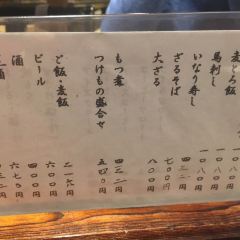 麦とろ飯
馬刺し 一〇八〇円
いなり寿し
ざるそば 七〇〇円
大ざる 八〇〇円
もつ煮 四三二円
つけもの盛合せ 五四〇円
ご飯・麦飯 二一六円
ビール 六〇〇円
酒 四〇〇円